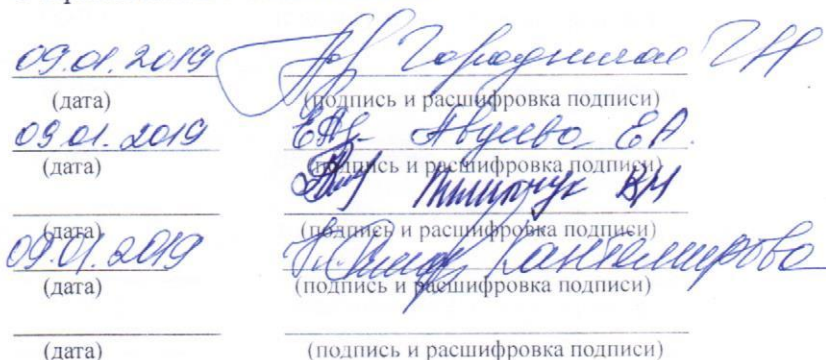 09.01.2019 Городницкая ГН
(дата) (подпись и расшифровка подписи)
09.01.2019 Авдеева ЕА.
(дата) (подпись и расшифровка подписи)
(дата) (подпись и расшифровка подписи)
09.01.2019 Кантемирова
(дата) (подпись и расшифровка подписи)
(дата) (подпись и расшифровка подписи)